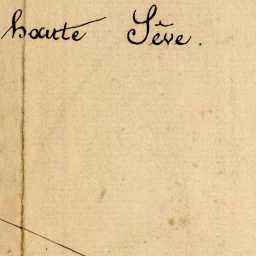 haute Sève.